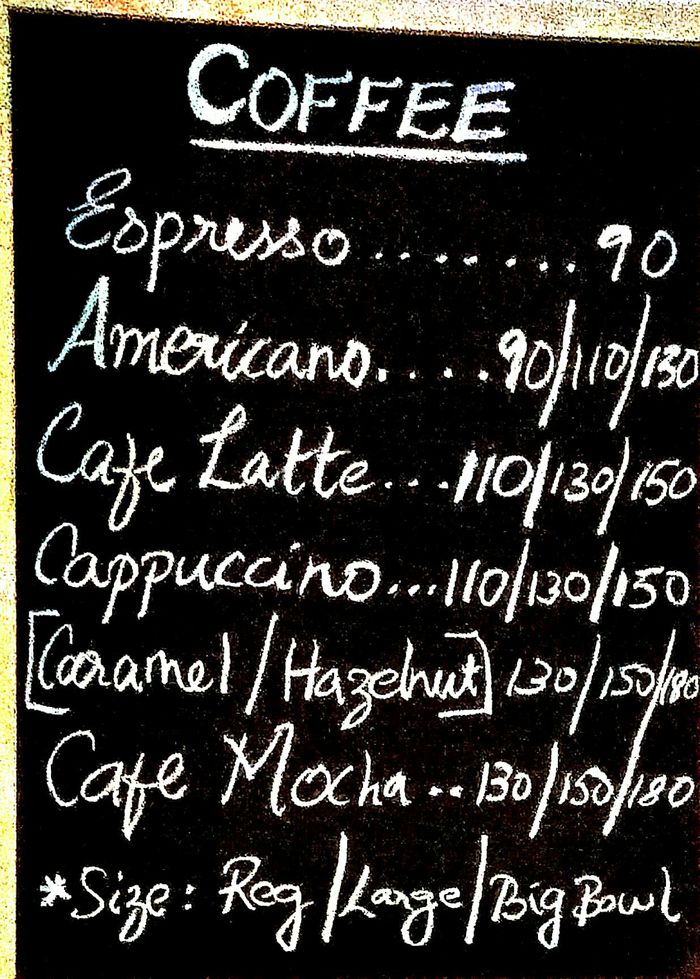 COFFEE
Espresso ........ 90
Americano.....90/110/130
Cafe Latte...110/130/150
Cappuccino...110/130/150
[Caramel/Hazelnut] 130/150/180
Cafe Mocha ..130/150/180
*Size: Reg/Large/Big Bowl